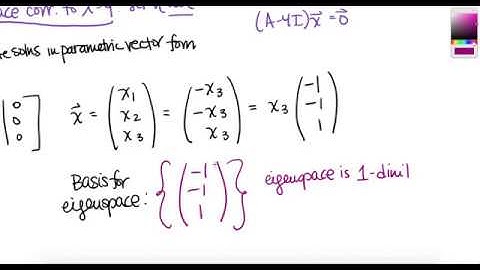 ace corr. to λ=4
(A-4I)x⃗=0⃗
e solns in parametric vector form
[0 0 0] x⃗ = (x₁ x₂ x₃) = (-x₃ -x₃ x₃) = x₃ (-1 -1 1)
Basis for
eigenspace: {(-1 -1 1)} eigenspace is 1-dim'l